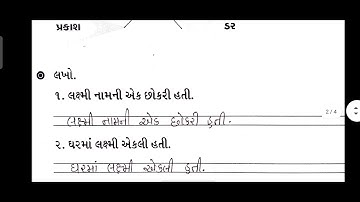 પ્રકાશ ડર
લખો.
૧. લક્ષ્મી નામની એક છોકરી હતી.
લક્ષ્મી નામની એક છોકરી હતી.
2/4
૨. ઘરમાં લક્ષ્મી એકલી હતી.
ઘરમાં લક્ષ્મી એકલી હતી.